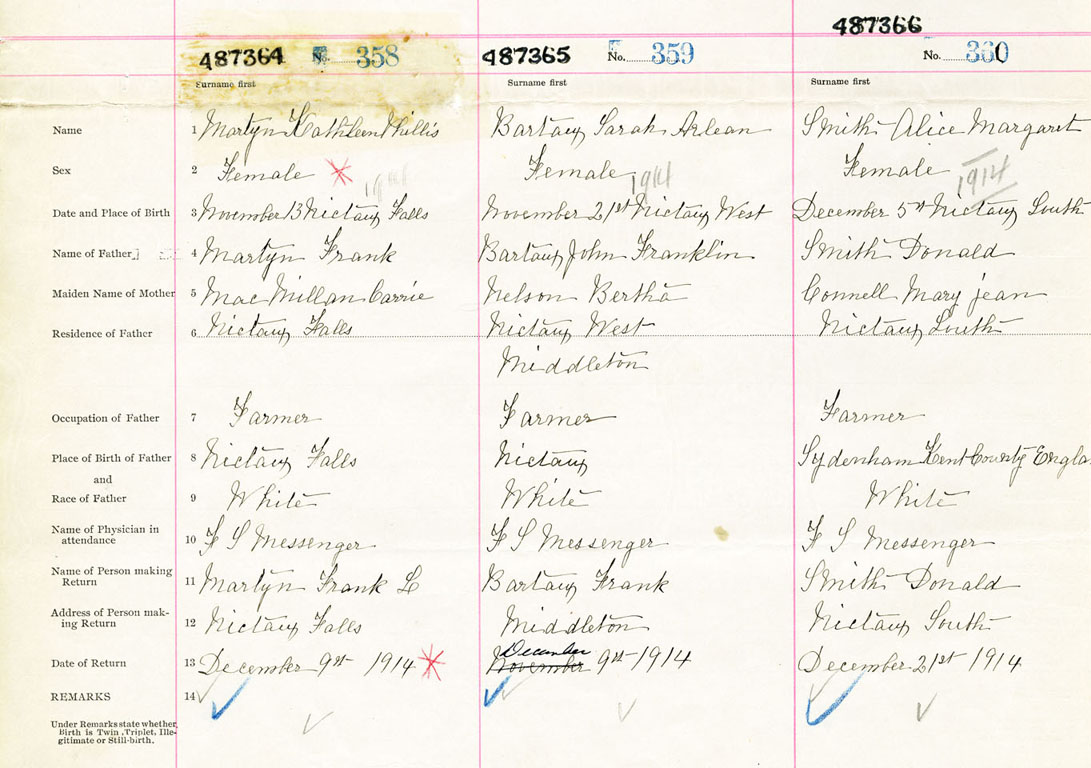 487366
487364 No. 358 487365 No. 359 No. 360
Surname first Surname first Surname first
Name 1 Martyn Kathleen Phillis Bartaux Sarah Azlean Smith Alice Margaret
Sex 2 Female Female Female
1914 1914
Date and Place of Birth 3 November 13 Nictaux Falls November 21st Nictaux West December 5th Nictaux South
Name of Father 4 Martyn Frank Bartaux John Franklin Smith Donald
Maiden Name of Mother 5 Mac Millan Carrie Nelson Bertha Connell Mary jean
Residence of Father 6 Nictaux Falls Nictaux West Nictaux South
Middleton
Occupation of Father 7 Farmer Farmer Farmer
Place of Birth of Father 8 Nictaux Falls Nictaux Sydenham Kent County Engla
and
Race of Father 9 White White White
Name of Physician in
attendance 10 F S Messenger F S Messenger F S Messenger
Name of Person making
Return 11 Martyn Frank L Bartaux Frank Smith Donald
Address of Person mak-
ing Return 12 Nictaux Falls Middleton Nictaux South
December
Date of Return 13 December 9th 1914 November 9th 1914 December 21st 1914
REMARKS 14
Under Remarks state whether
Birth is Twin, Triplet, Ille-
gitimate or Still-birth.